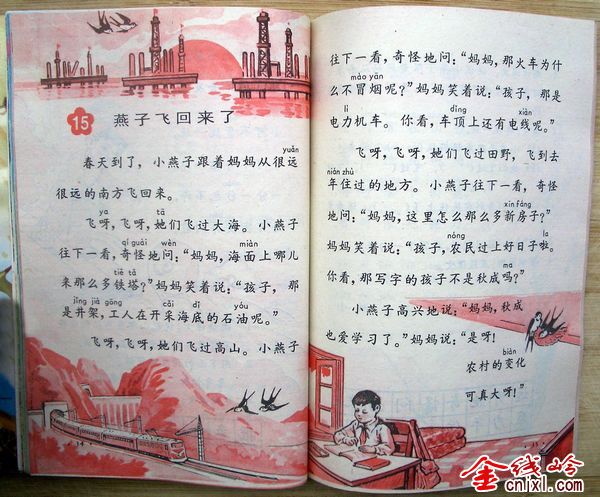 15 燕子飞回来了
yuǎn
春天到了，小燕子跟着妈妈从很远
很远的南方飞回来。
ya tā
飞呀，飞呀，她们飞过大海。小燕子
qí guài wèn miàn
往下一看，奇怪地问：“妈妈，海面上哪儿
tiě tǎ
来那么多铁塔？”妈妈笑着说：“孩子，那
jǐng jià gōng cǎi dǐ yóu
是井架，工人在开采海底的石油呢。”
飞呀，飞呀，她们飞过高山。小燕子
14
往下一看，奇怪地问：“妈妈，那火车为什
mào yān
么不冒烟呢？”妈妈笑着说：“孩子，那是
lì dǐng xiàn
电力机车。你看，车顶上还有电线呢。”
飞呀，飞呀，她们飞过田野，飞到去
nián zhù
年住过的地方。小燕子往下一看，奇怪
xīn fáng
地问：“妈妈，这里怎么那么多新房子？”
nóng
妈妈笑着说：“孩子，农民过上好日子啦。
ma
你看，那写字的孩子不是秋成吗？”
小燕子高兴地说：“妈妈，秋成
也爱学习了。”妈妈说：“是呀！
biàn
农村的变化
可真大呀！”
15
金线岭
cnlxl.com